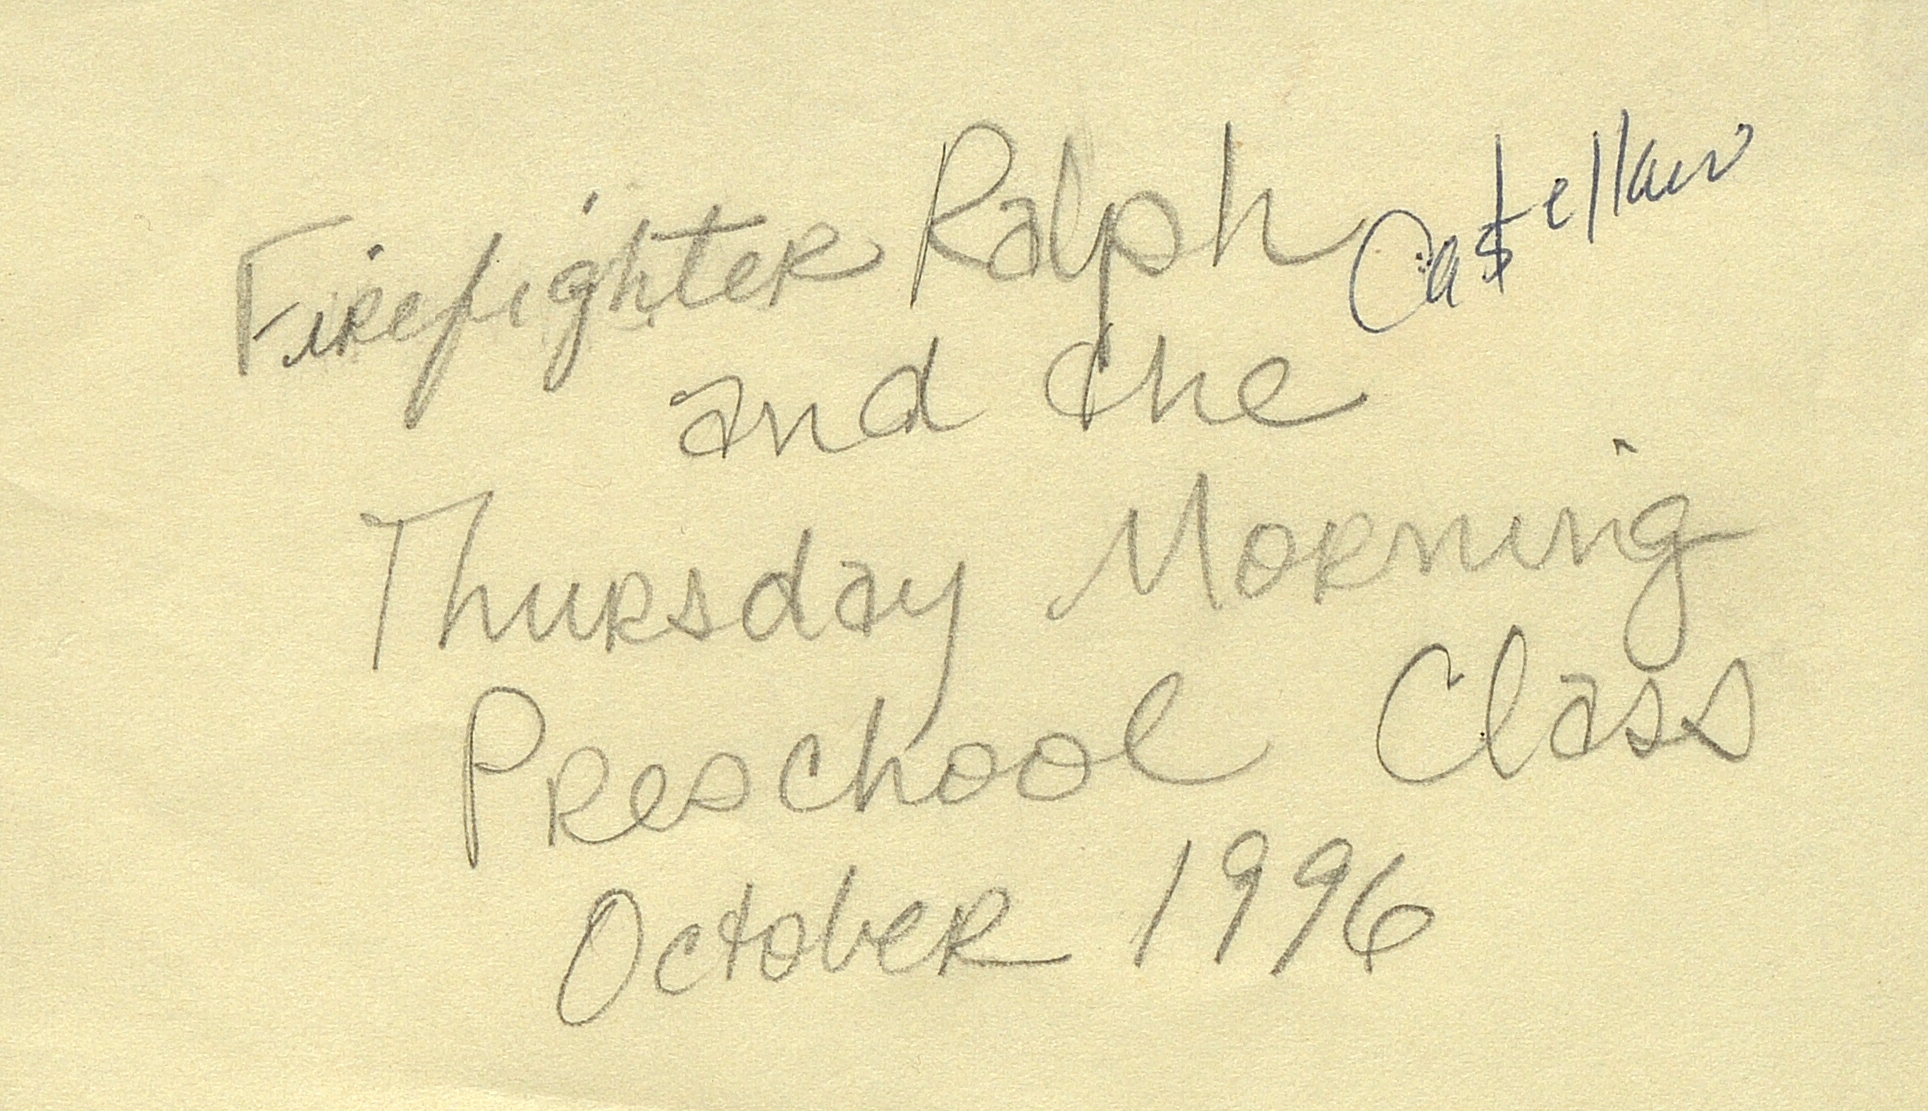 Firefighter Ralph Castellano
and the
Thursday Morning
Preschool Class
October 1996